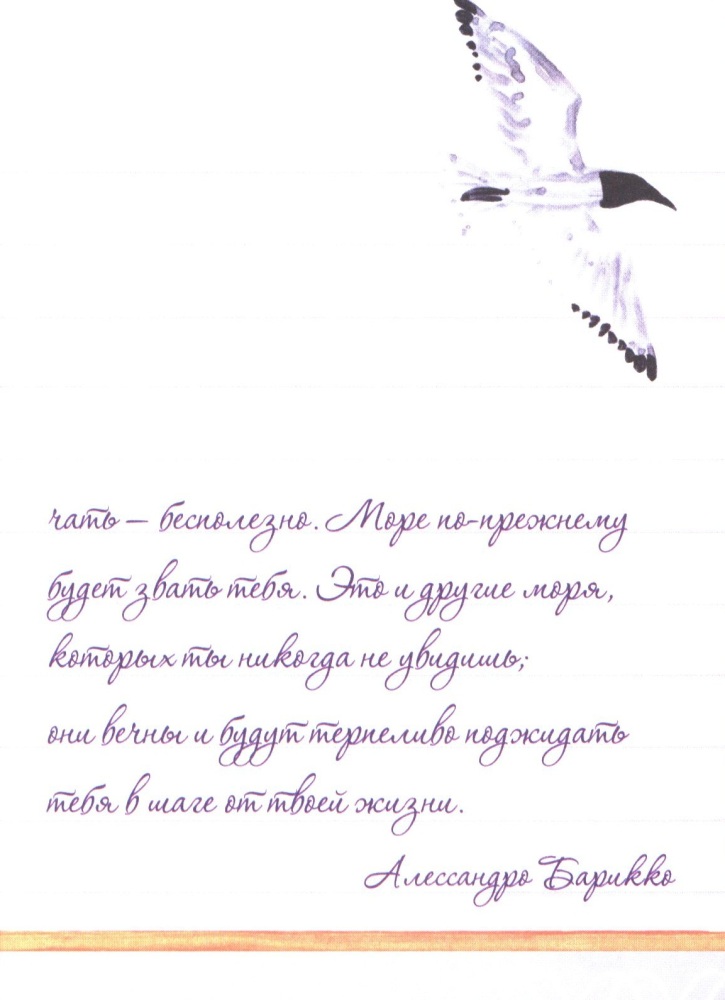 чать — бесполезно. Море по-прежнему
будет звать тебя. Это и другие моря,
которых ты никогда не увидишь;
они вечны и будут терпеливо поджидать
тебя в шаге от твоей жизни.
Алессандро Барикко